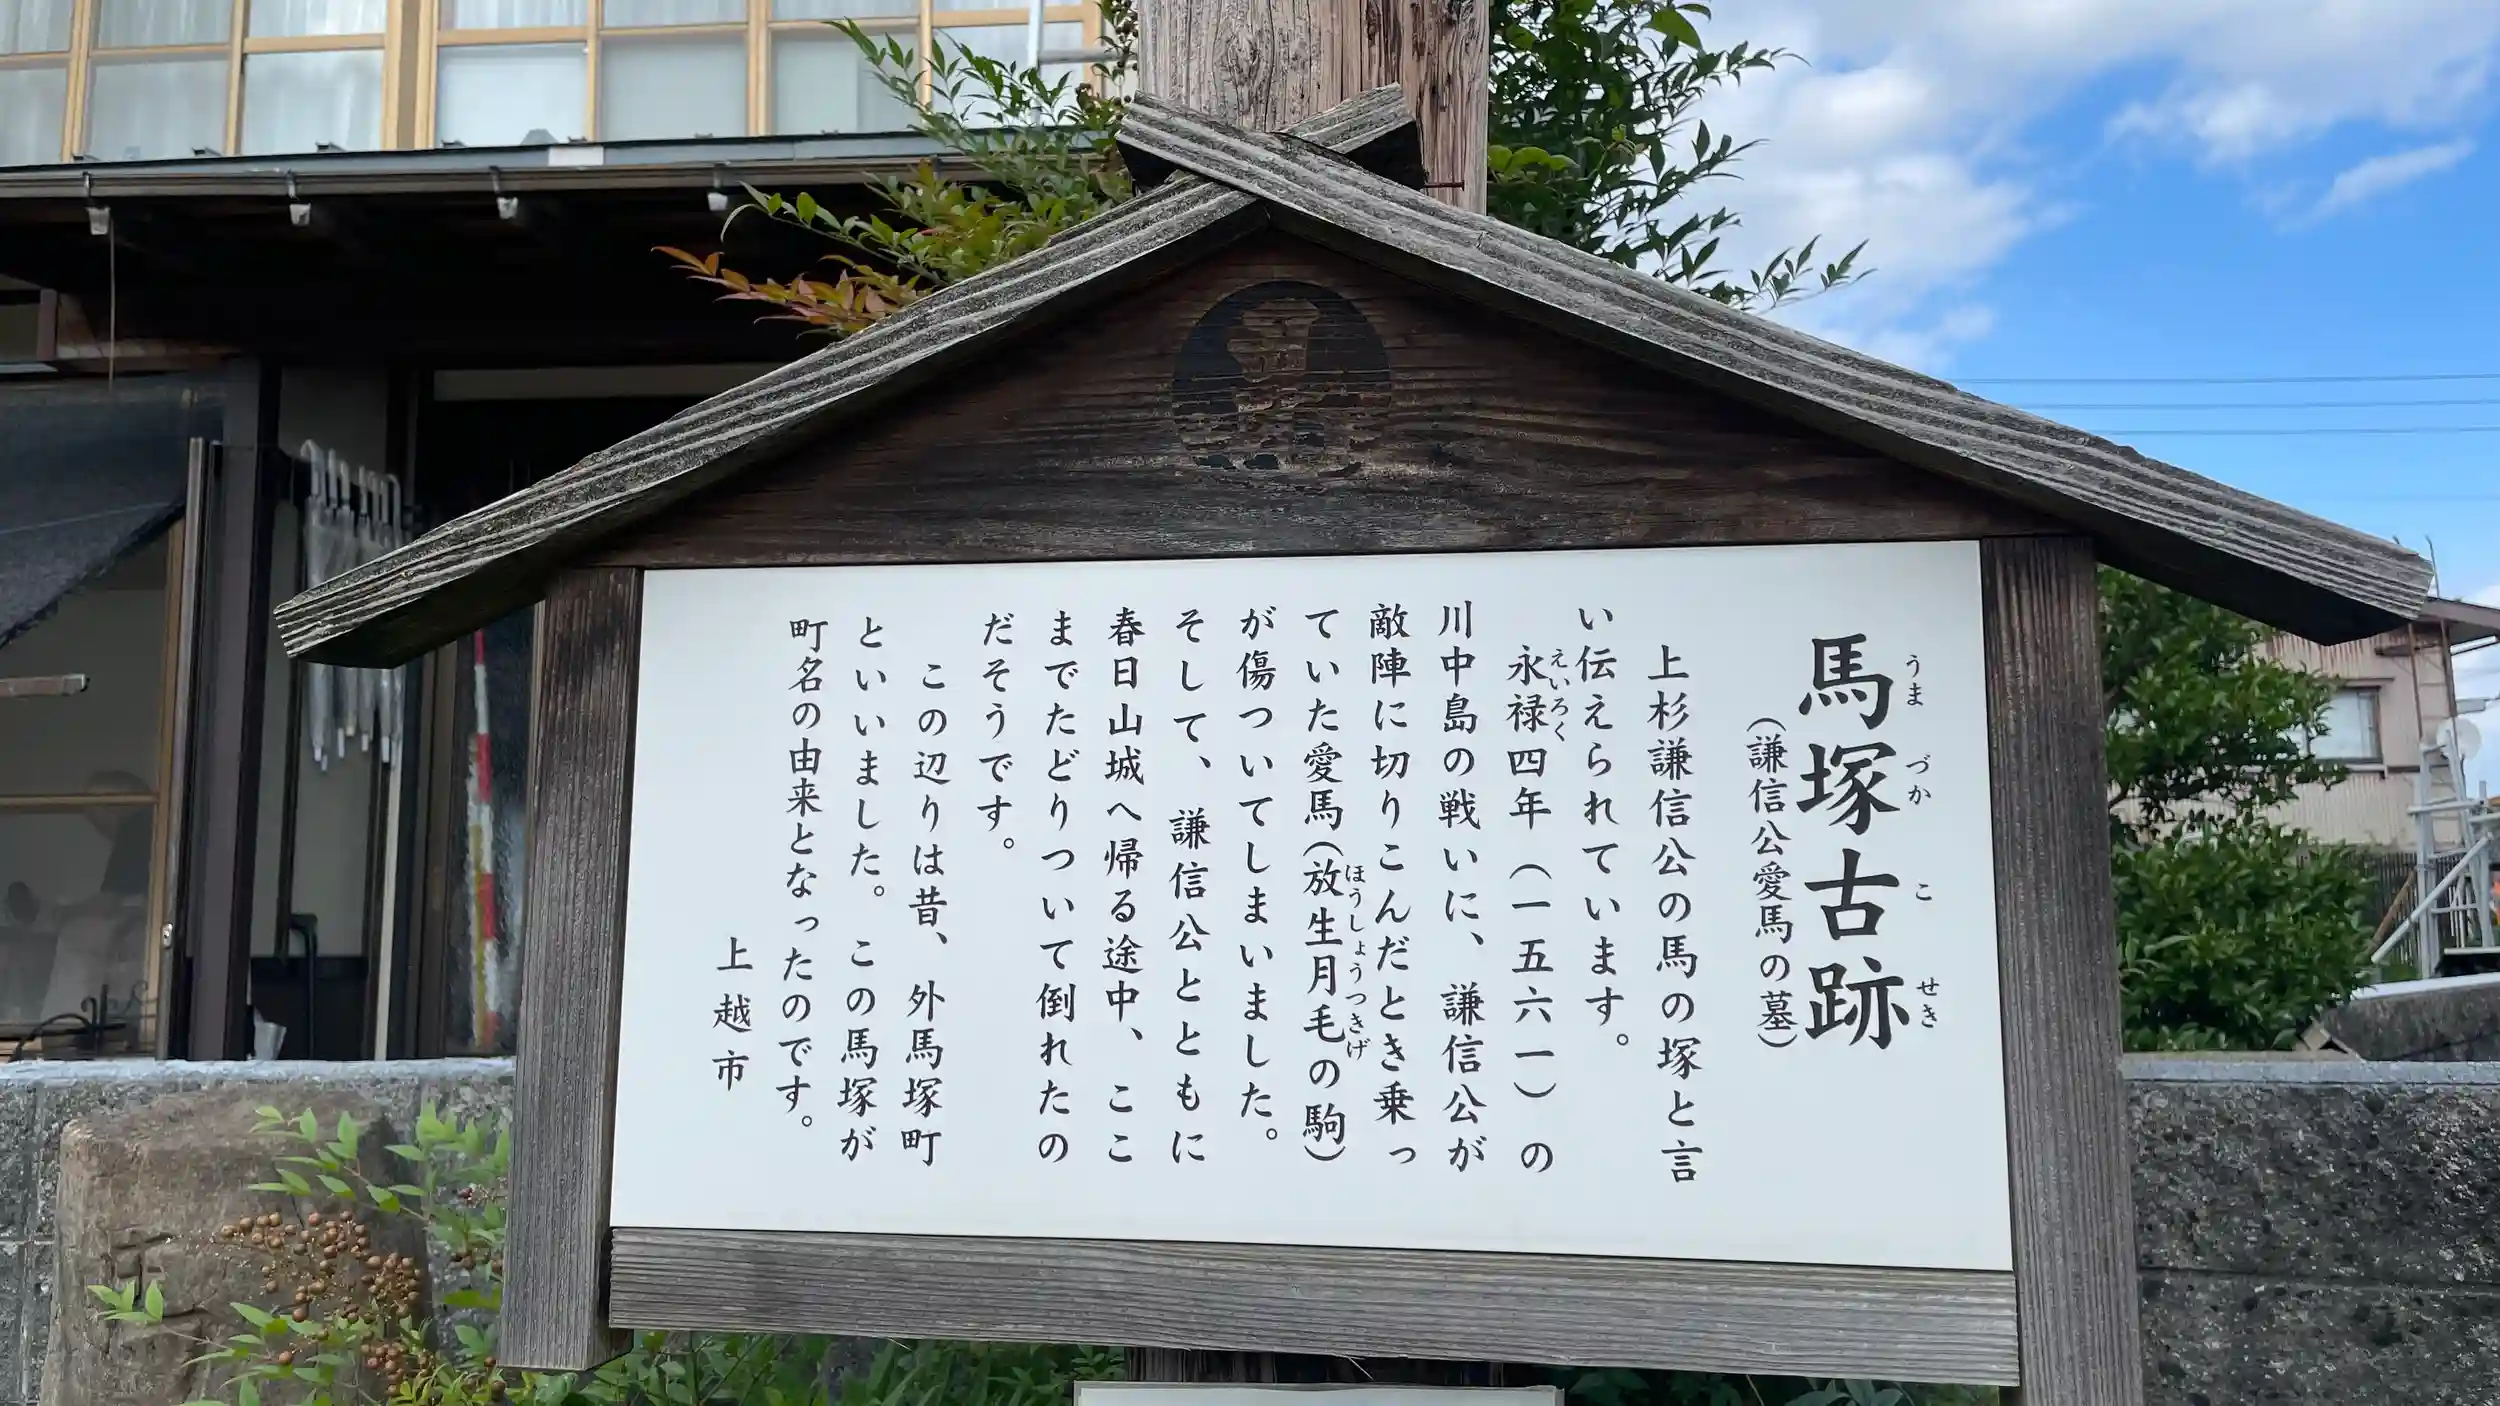 馬塚古跡
うまづかこせき
（謙信公愛馬の墓）
上杉謙信公の馬の塚と言
い伝えられています。
永禄四年（一五六一）の
えいろく
川中島の戦いに、謙信公が
敵陣に切りこんだとき乗っ
ていた愛馬（放生月毛の駒）
ほうしょうつきげ
が傷ついてしまいました。
そして、謙信公とともに
春日山城へ帰る途中、ここ
までたどりついて倒れたの
だそうです。
この辺りは昔、外馬塚町
といいました。この馬塚が
町名の由来となったのです。
上越市